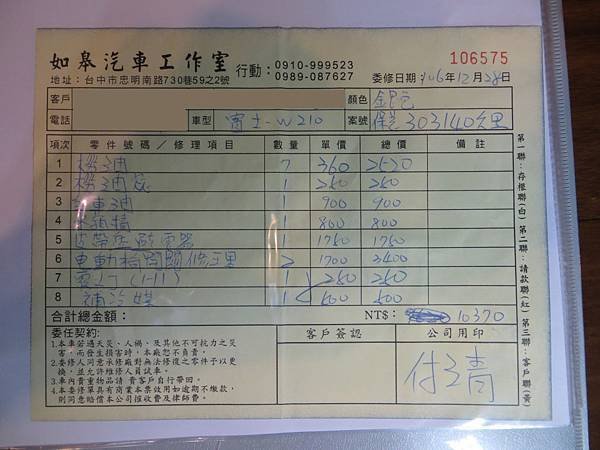 如皋汽車工作室 行動：0910-999523 0989-087627 106575
地址：台中市忠明南路730巷59之2號 委修日期：106年12月28日
客戶 顏色 銀色
電話 車型 賓士-W210 案號 303140公里
項次 零件號碼／修理項目 數量 單價 總價 備註
1 機油 7 360 2520
2 機油芯 1 250 250
3 煞車油 1 900 900
4 1 800 800
5 皮帶 1 1750 1750
6 電動 2 1700 3400
7 (1-11) 1 250 250
8 補冷媒 1 500 500
合計總金額： NT$： 10370
委任契約：
1.本車若遇天災、人禍、及其他不可抗力之災
害，而發生損害時，本廠恕不負責。
2.委修人同意承修廠對無法修復之零件予以更
換，並允許維修人員試車。
3.車內貴重物品請 貴客戶自行帶回。
4.本委修單具有商業本票效用如逾期不繳款，
則同意賠償本公司催收費及律師費。
客戶簽認
公司用印
付清
第一聯：存根聯(白) 第二聯：請款聯(紅) 第三聯：客戶聯(黃)